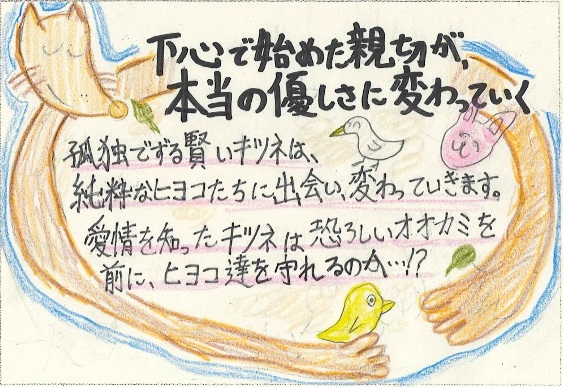 下心で始めた親切が、
本当の優しさに変わっていく
孤独でずる賢いキツネは、
純粋なヒヨコたちに出会い、変わっていきます。
愛情を知ったキツネは恐ろしいオオカミを
前に、ヒヨコ達を守れるのか…!?